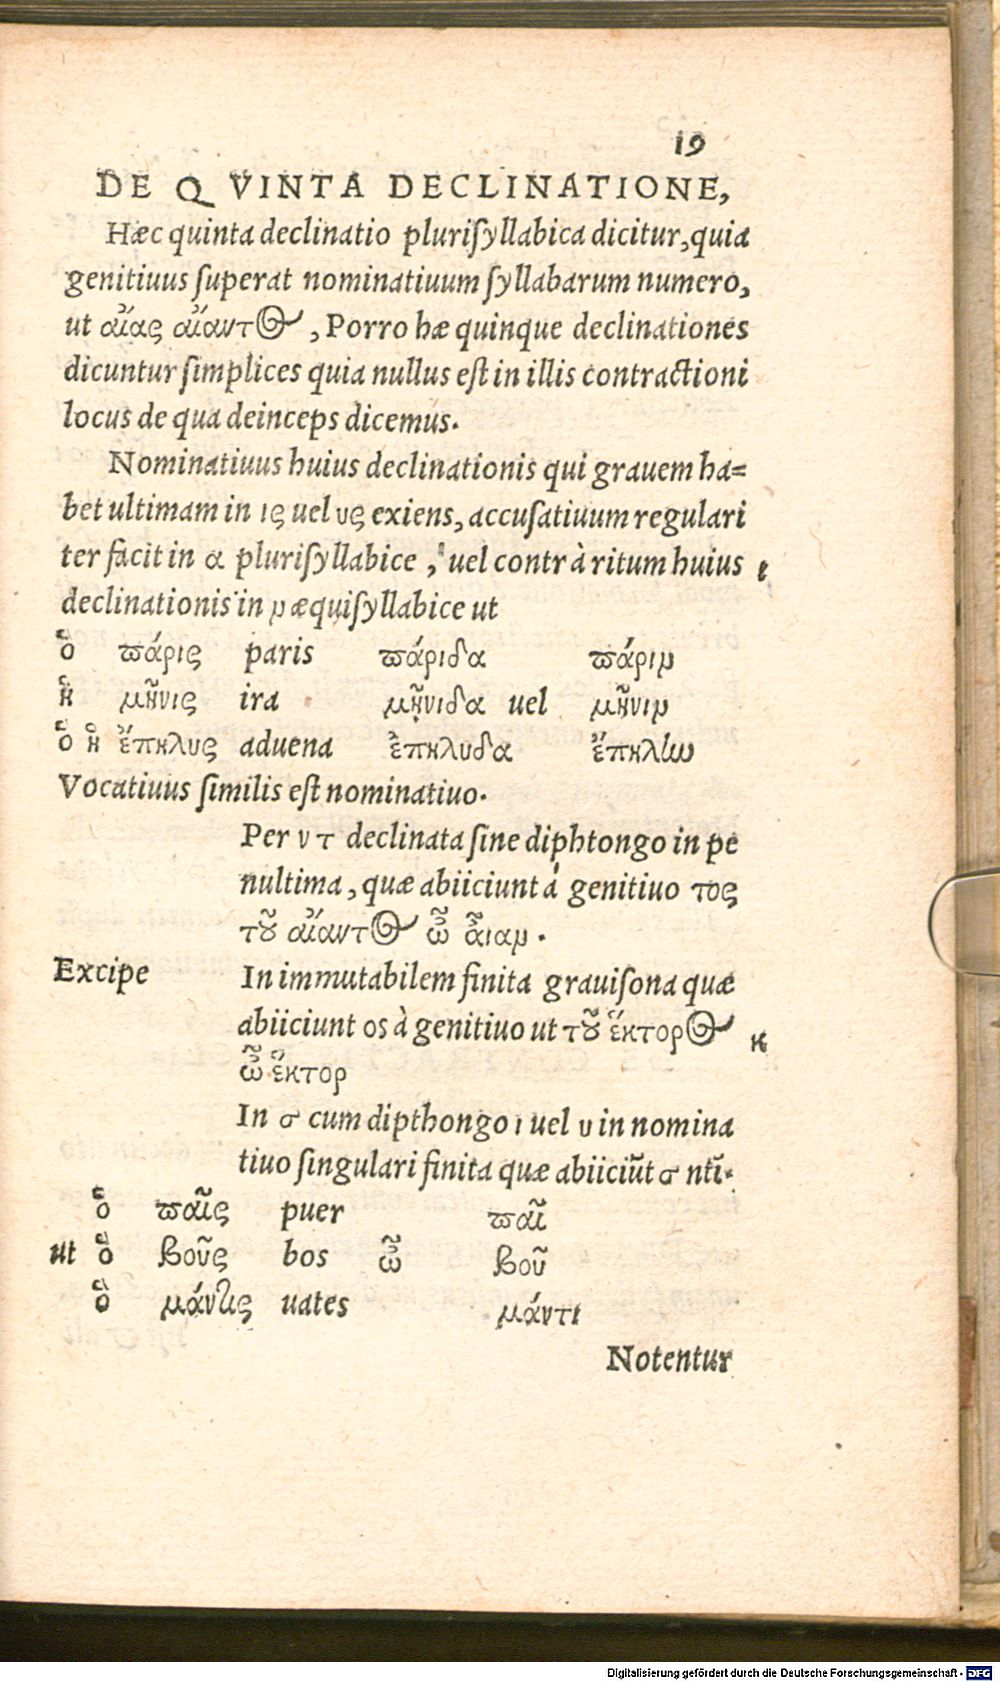 19
DE QVINTA DECLINATIONE,
Hæc quinta declinatio pluriſyllabica dicitur, quia
genitiuus ſuperat nominatiuum ſyllabarum numero,
ut αἴας αἴαντος, Porro hæ quinque declinationes
dicuntur ſimplices quia nullus eſt in illis contractioni
locus de qua deinceps dicemus.
Nominatiuus huius declinationis qui grauem ha=
bet ultimam in ις uel υς exiens, accuſatiuum regulari
ter facit in α pluriſyllabice, uel contrà ritum huius
declinationis in ν æquiſyllabice ut
ὁ πάρις paris πάριδα πάριν
ἡ μῆνις ira μήνιδα uel μῆνιν
ὁ ἡ ἔπηλυς aduena ἐπήλυδα ἔπηλυν
Vocatiuus ſimilis eſt nominatiuo.
Per ντ declinata ſine diphtongo in pe
nultima, quæ abiiciunt à genitiuo τος
τοῦ αἴαντος ὦ αἶαν.
Excipe In immutabilem finita grauiſona quæ
abiiciunt os à genitiuo ut τοῦ ἕκτορος
ὦ ἕκτορ
In σ cum dipthongo ι uel υ in nomina
tiuo ſingulari finita quæ abiiciūt σ ntī.
ὁ παῖς puer παῖ
ut ὁ βοῦς bos ὦ βοῦ
ὁ μάντις uates μάντι
Notentur
Digitalisierung gefördert durch die Deutsche Forschungsgemeinschaft - DFG